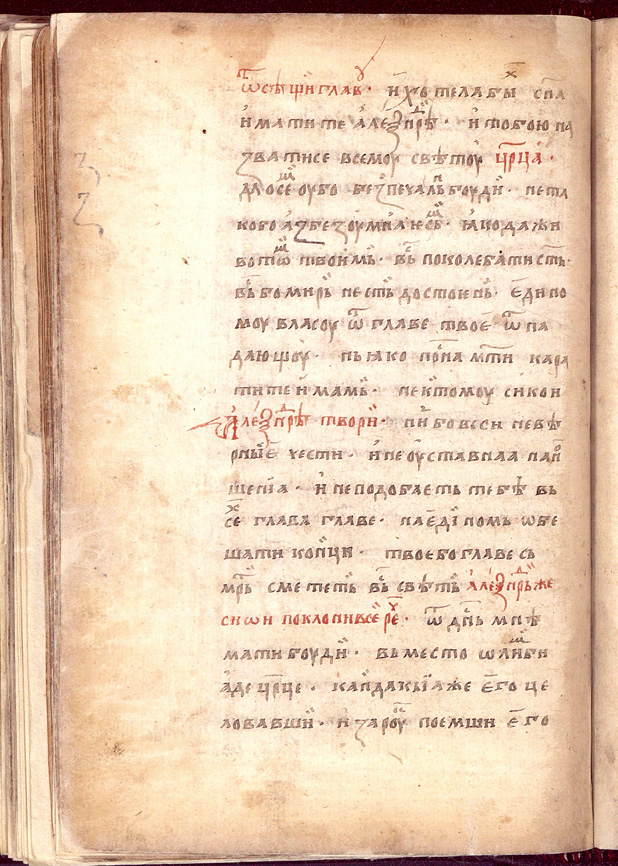 ѿсѣщи главꙋ · и҆ хотела бых спа
и҆мати те а҆леѯн҇дрѣ · и҆ тобою на
звати се всемоу свѣтоу ц҃рца ·
да ѡсе оубо безпечаль боуди · не та
кова а҆зь безоумнаꙗ е҆смь · ꙗ҆ко да жи
вотѡⷨ твоимь · въ поколебати с҇ть ·
въ бо мирь нѣсть достоинь · е҆дино
моу власоу ѿ главе твое ѿпа
даюшоу · нь ꙗко прⷭна мт҃и кара
ти те и҆мамь · не ктомоу сикои
А҆леѯнⷣрѣ твори · ни бо вси невѣ
рныѥ чести · и҆ неоуставнаа нап
щениа · и҆ неподобаеть тебѣ вь
сеⷯ глава главе · на е҆диномь ѡбе
шати конци · твоѥ бо главе сь
мрть смететь въ свѣть а҆леѯнⷣрь же
сиѡн поклонив се реч҇е · ѿ дн҃ь мнѣ
мати боуди · вьместо ѡлимби
ꙗде ц҃рце · кандакыа же е҆го це
ловавши · и҆ за роукоу поемши е҆го